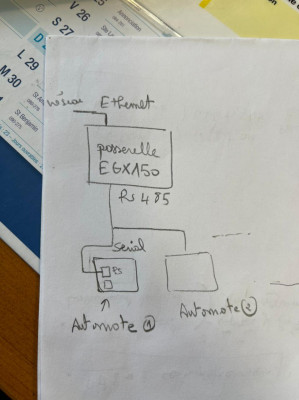 V 26
S 27
D
L 29
M 30
réseau Ethernet
passerelle
EGX150
Rs 485
Serial
Automate ①
Automate ②